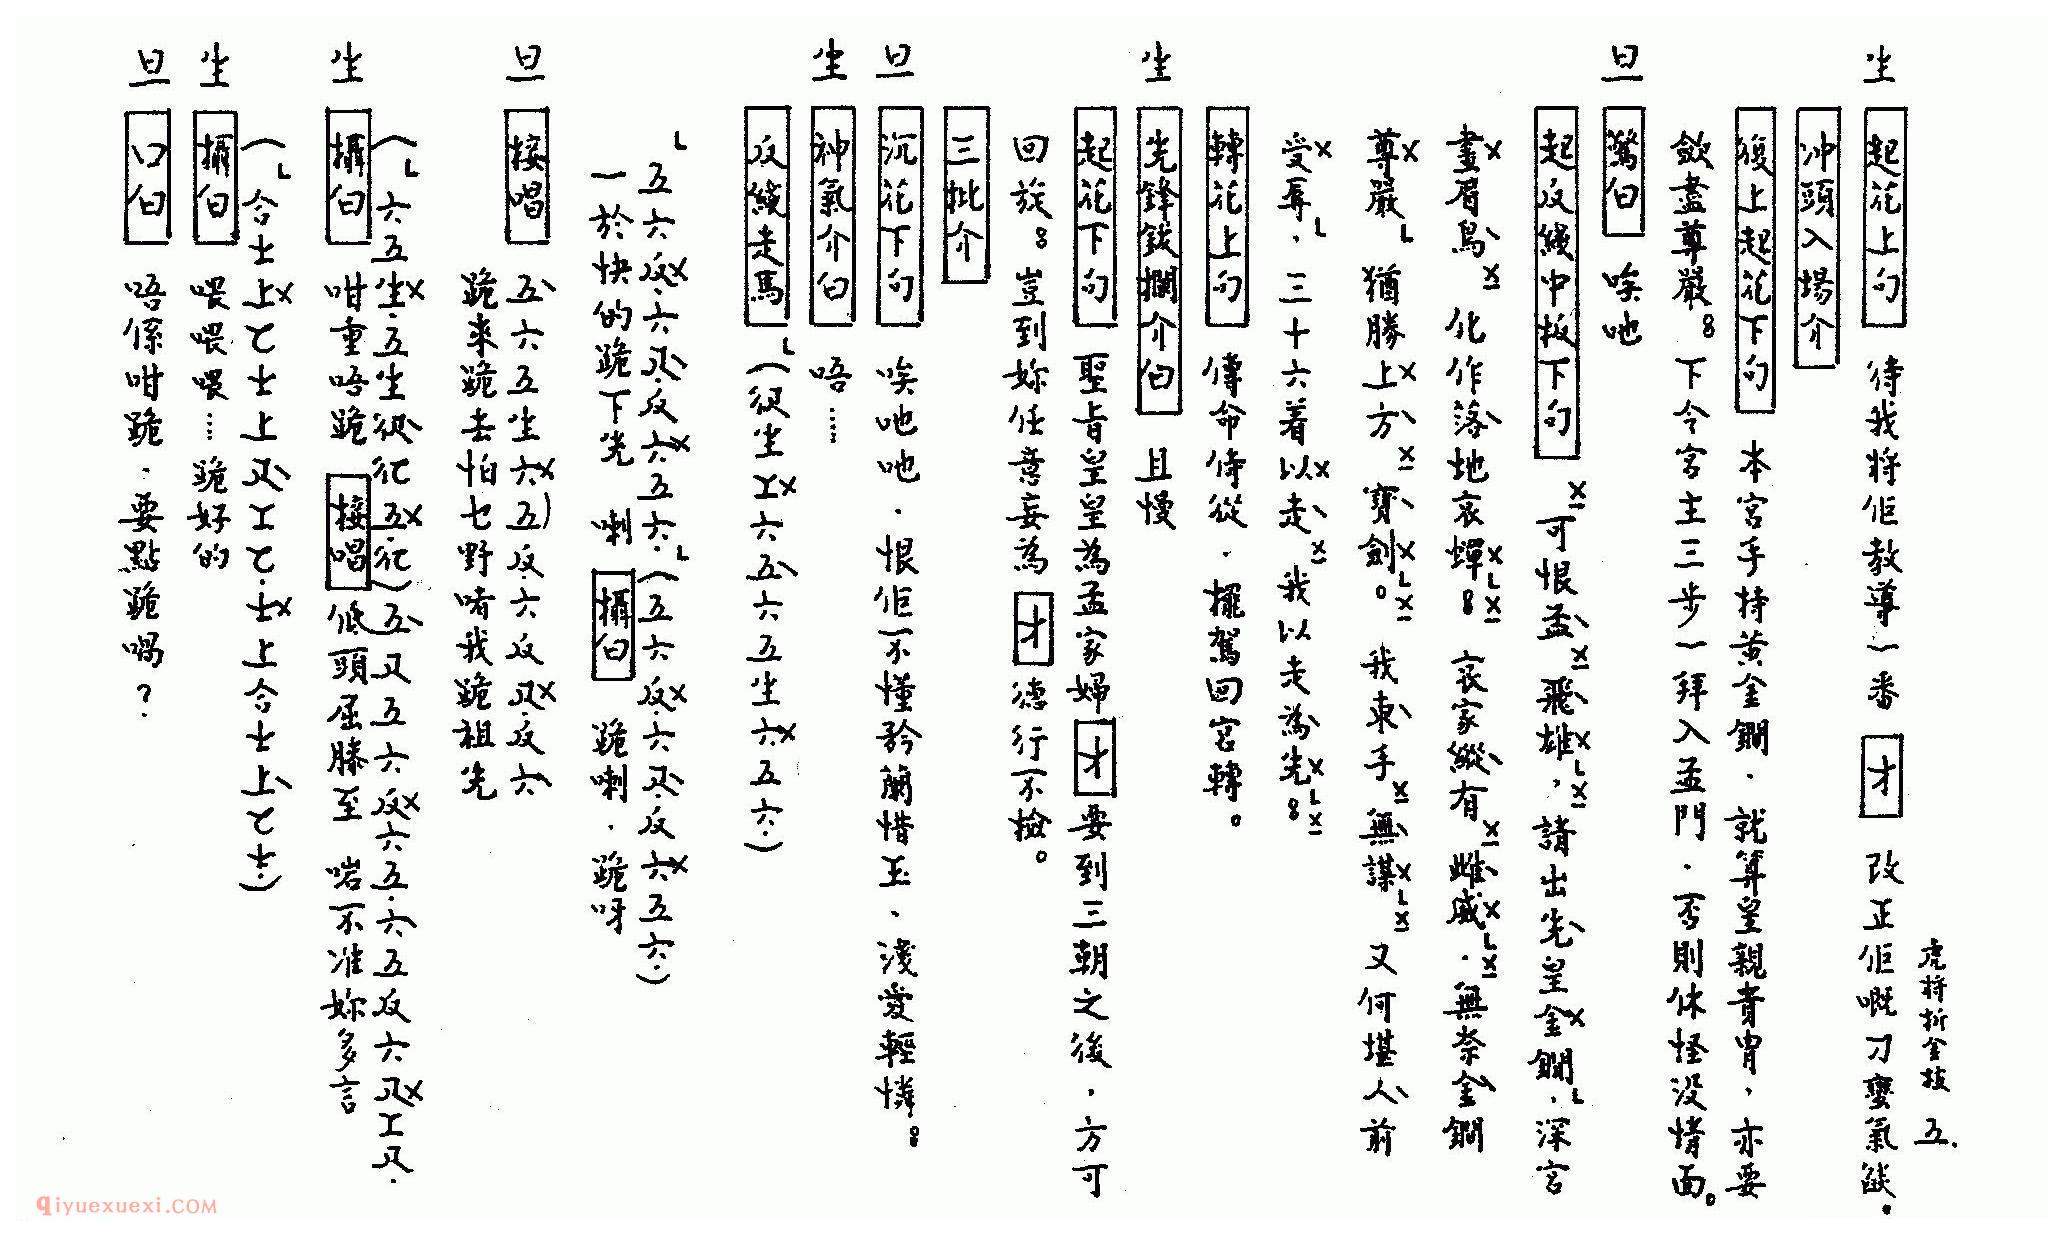 虎將折金枝 五.
生 起花上句 待我將佢教導一番 才 改正佢嘅刁蠻氣燄。
冲頭入場介
復上起花下句 本宮手持黄金鐧．就算皇親貴胄，亦要
歛盡尊嚴。下令宮主三步一拜入孟門．否則休怪没情面。
旦 驚白 唉吔
起反綫中板下句 可恨孟飛雄，請出先皇金鐧．深宮
畫眉鳥 化作落地哀蟬。哀家縱有雌威．無奈金鐧
尊嚴 猶勝上方寶劍。我束手無謀 又何堪人前
受辱．三十六着以走 我以走為先。
轉花上句 傳命侍從．擺駕回宮轉。
生 先鋒鈸擱介白 且慢
起花下句 聖旨皇皇為孟家婦 才 要到三朝之後，方可
回旋。豈到妳任意妄為 才 德行不檢。
三批介
旦 沉花下句 唉吔吔．恨佢不懂矜蘭惜玉、淺愛輕憐。
生 神氣介白 唔……
反綫走馬 (伬生工六五六五生六五六.)
五六反六反反六五六.(五六反六反反六五六.)
一於快的跪下先 喇 攝白 跪喇．跪呀
旦 接唱 五六五生六五)反六反反反六
跪來跪去怕乜野啫我跪祖先
(六五生五生伬仩五仩)五反五六反六五六五反六反工反
生 攝白 咁重唔跪 接唱 低頭屈膝至啱不准妳多言
(合士上乙士上反工乙士上合士上乙士.)
生 攝白 喂喂喂…跪好的
旦 口白 唔係咁跪．要點跪喎？
qiyuexuexi.COM